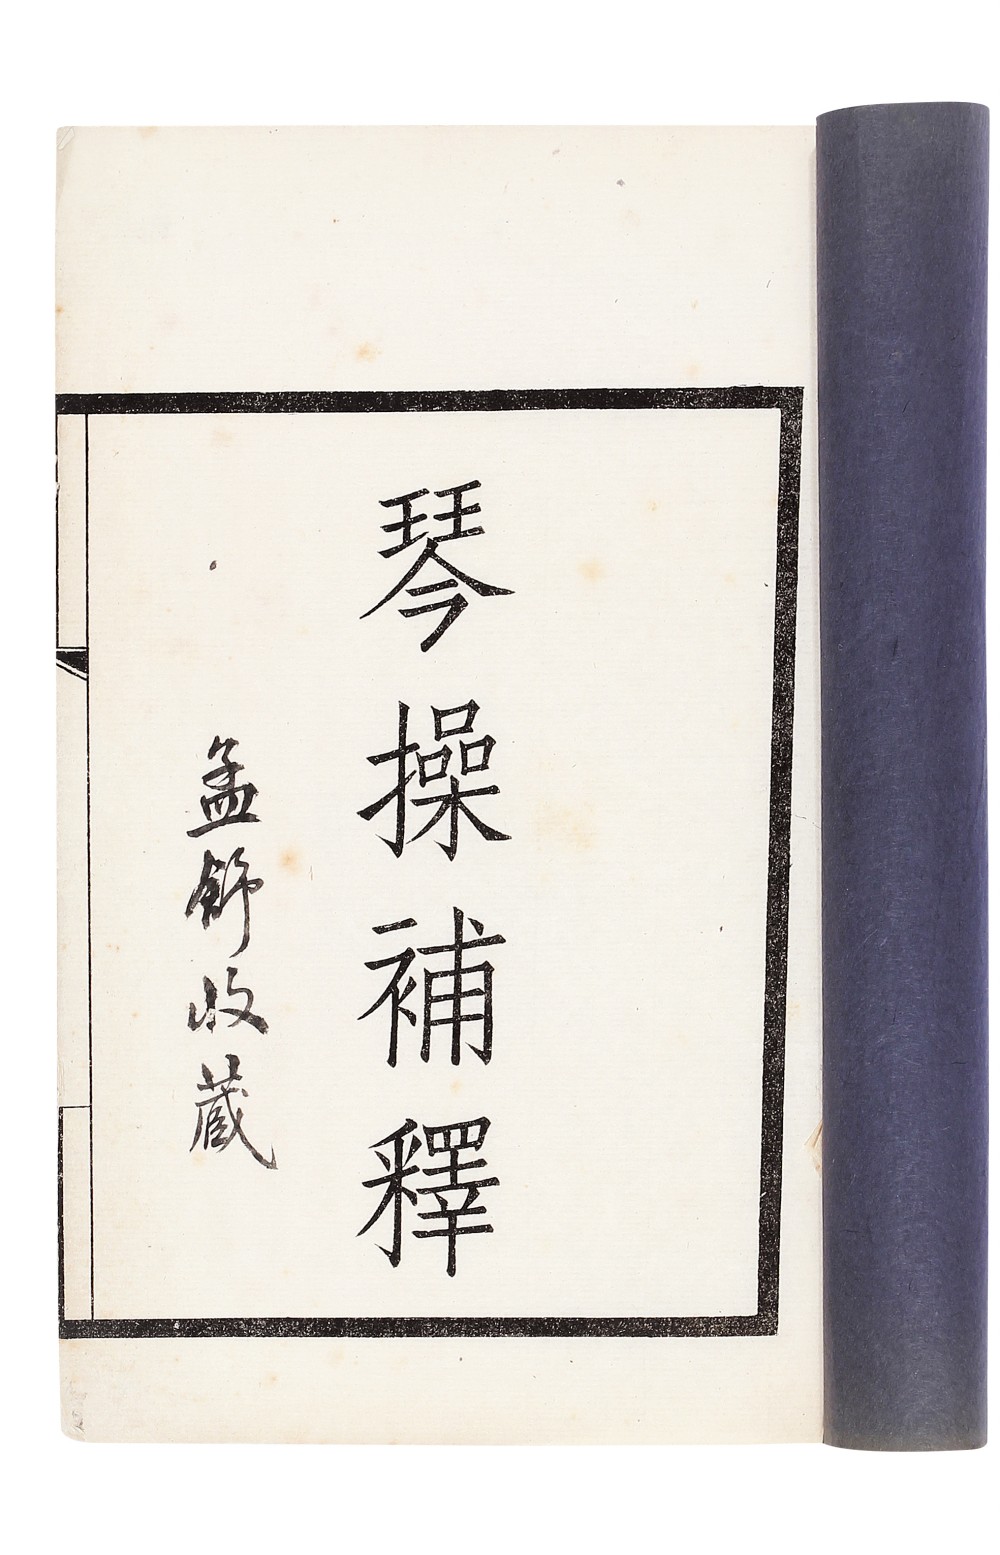 琴操補釋
孟舒收藏